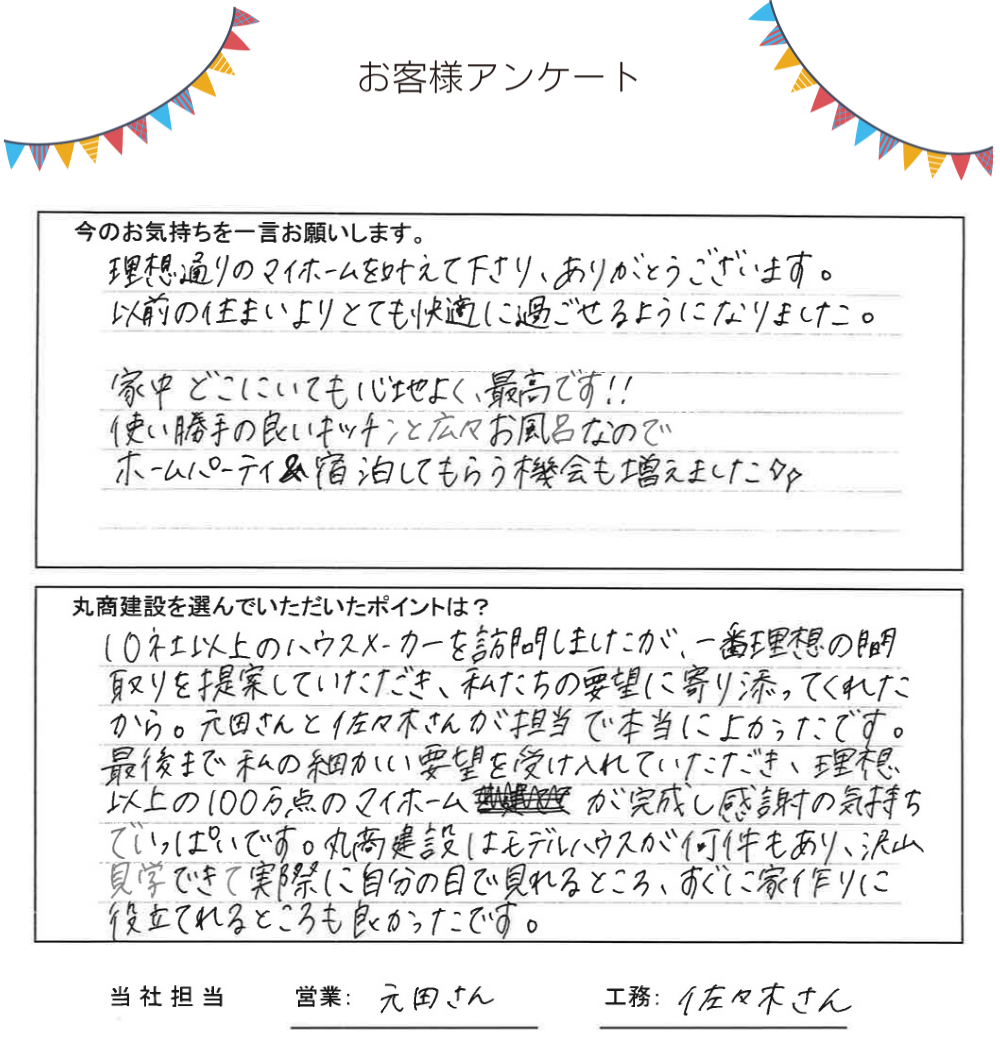 お客様アンケート
今のお気持ちを一言お願いします。
理想通りのマイホームを叶えて下さり、ありがとうございます。
以前の住まいよりとても快適に過ごせるようになりました。
家中どこにいても心地よく、最高です!!
使い勝手の良いキッチンと広々お風呂なので
ホームパーティ&宿泊してもらう機会も増えました
丸商建設を選んでいただいたポイントは？
10社以上のハウスメーカーを訪問しましたが、一番理想の間
取りを提案していただき、私たちの要望に寄り添ってくれた
から。元田さんと佐々木さんが担当で本当によかったです。
最後まで私の細かい要望を受け入れていただき、理想
以上の100万点のマイホームが完成し感謝の気持ち
でいっぱいです。丸商建設はモデルハウスが何件もあり、沢山
見学できて実際に自分の目で見れるところ、すぐに家作りに
役立てれるところも良かったです。
当社担当 営業: 元田さん 工務: 佐々木さん